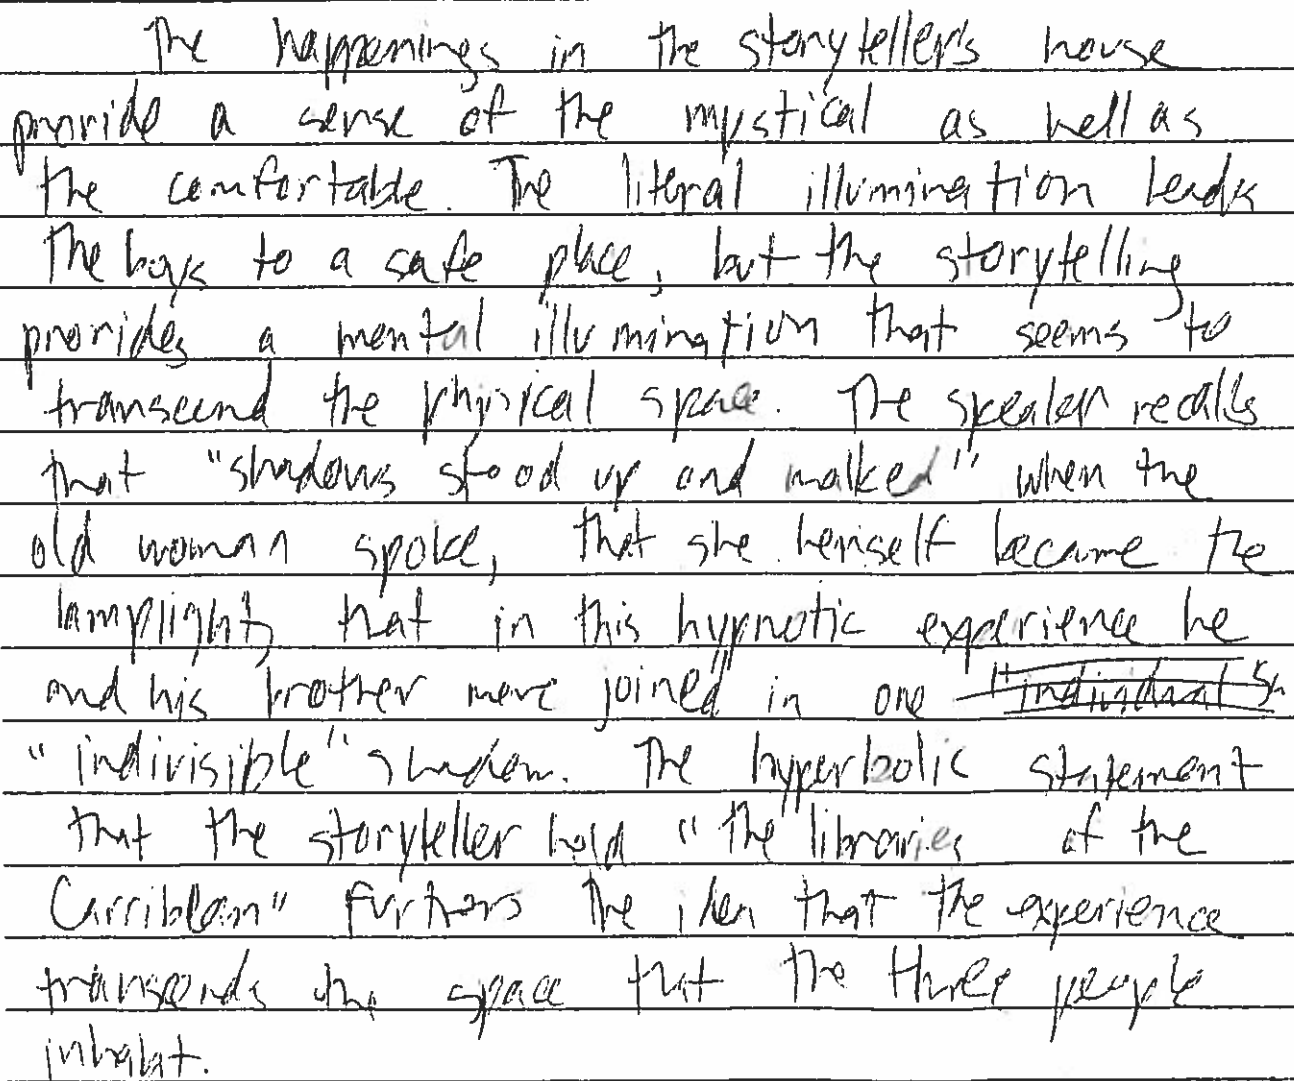 The happenings in the storyteller's house
provide a sense of the mystical as well as
the comfortable. The literal illumination leads
the boys to a safe place, but the storytelling
provides a mental illumination that seems to
transcend the physical space. The speaker recalls
that "shadows stood up and walked" when the
old woman spoke, that she herself became the
lamplight, that in this hypnotic experience he
and his brother were joined in one "individual sh
"indivisible" shadow. The hyperbolic statement
that the storyteller held "the libraries of the
Carriblean" furthers the idea that the experience
transcends the space that the three people
inhabit.